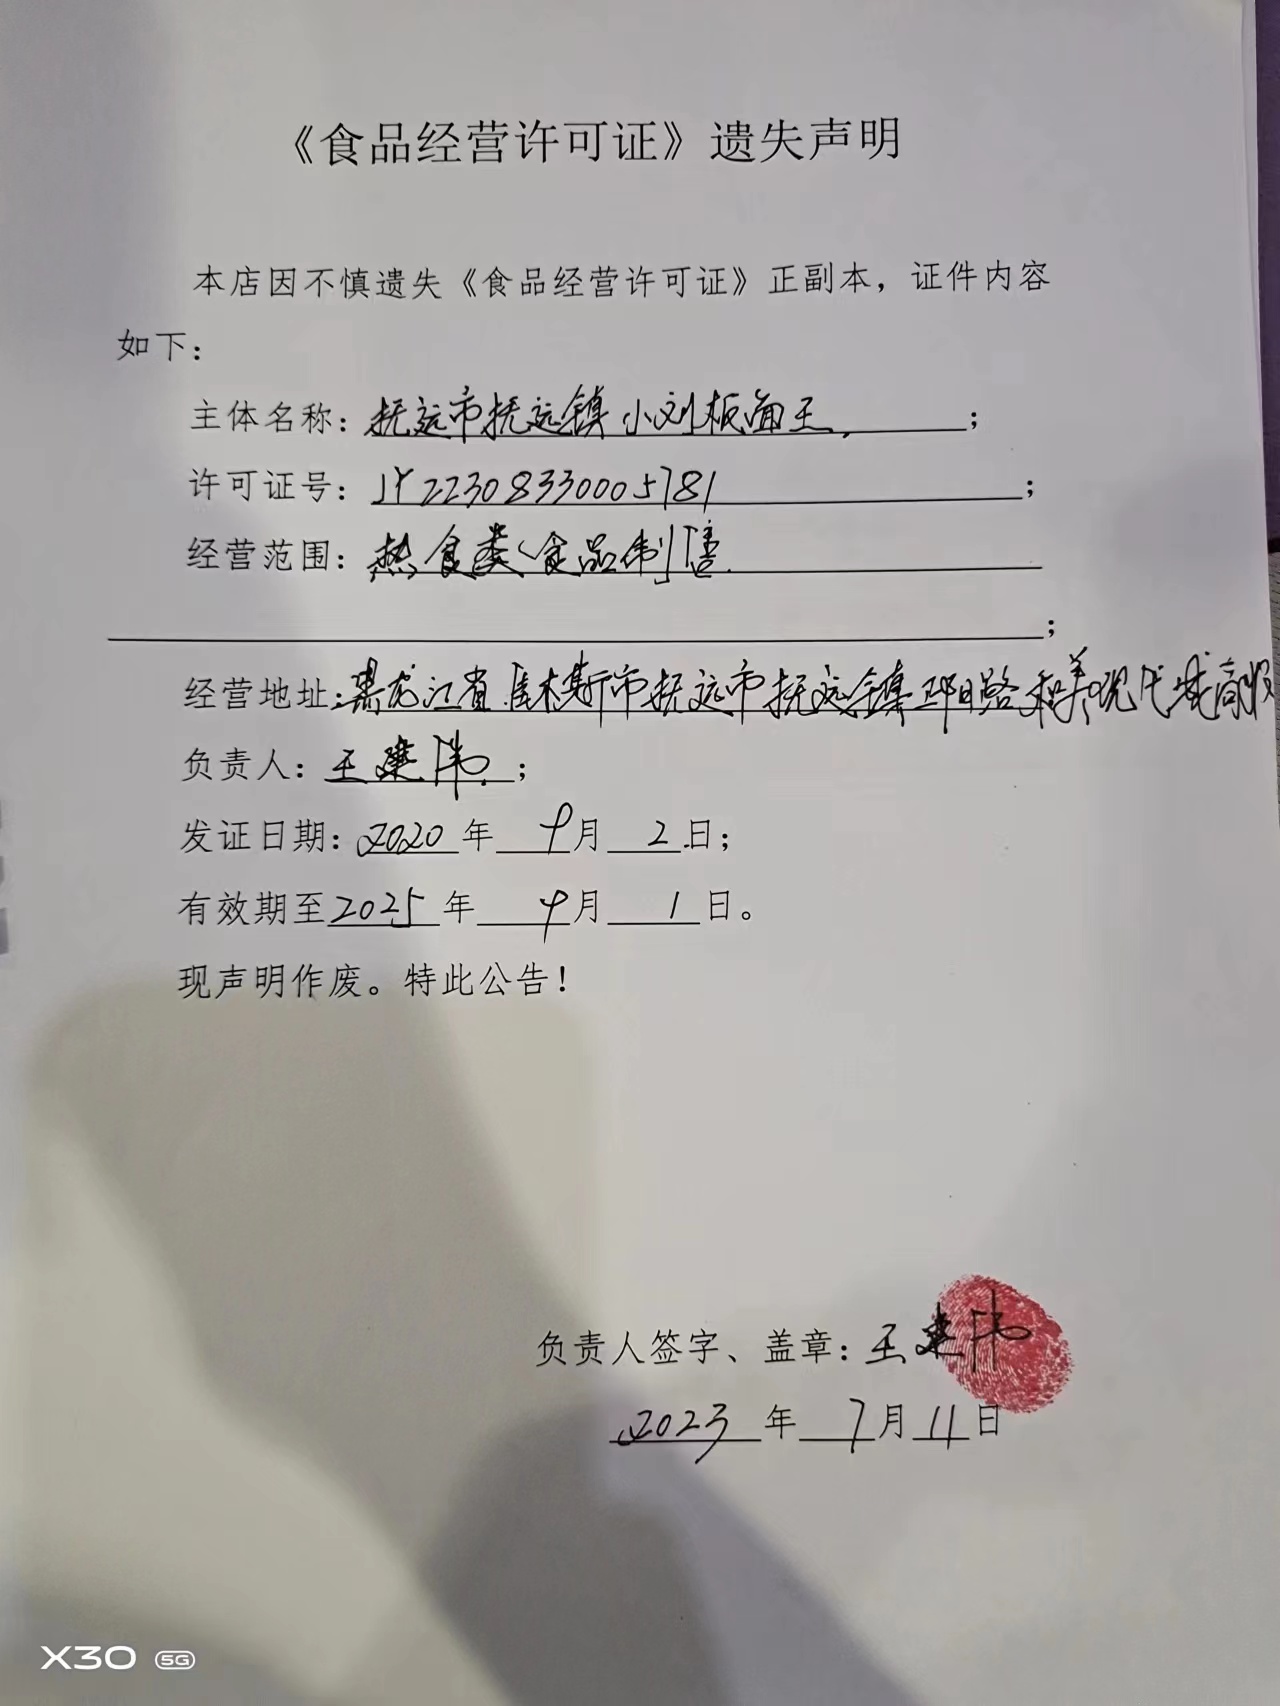 《食品经营许可证》遗失声明
本店因不慎遗失《食品经营许可证》正副本，证件内容
如下：
主体名称：抚远市抚远镇小刘板面王；
许可证号：JY22308330005781；
经营范围：热食类食品制售
；
经营地址：黑龙江省佳木斯市抚远市抚远镇 路和美现代城
负责人：王建伟；
发证日期：2020年9月2日；
有效期至2025年9月1日。
现声明作废。特此公告！
负责人签字、盖章：王建伟
2023年7月11日
X30 5G